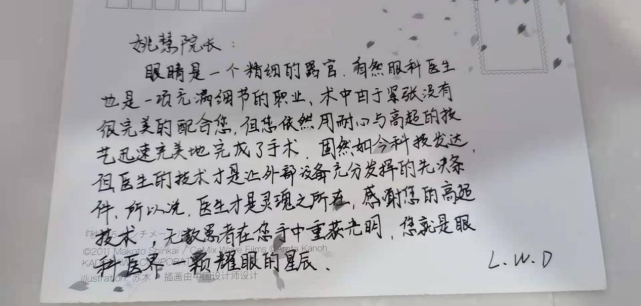 姚慧院长:
眼睛是一个精细的器官,自然眼科医生
也是一项充满细节的职业、术中由于紧张没有
很完美的配合您,但您依然用耐心与高超的技
艺迅速完美地完成了手术.固然如今科技发达,
但医生的技术才是让外部设备充分发挥的先决条
件、所以说,医生才是灵魂之所在,感谢您的高超
技术,无数患者在您手中重获光明,您就是眼
科医界一颗耀眼的星辰.
L.W.D
©2011 Makoto Shinkai / CoMix Wave Films
Kanoh
插画由中国设计师设计